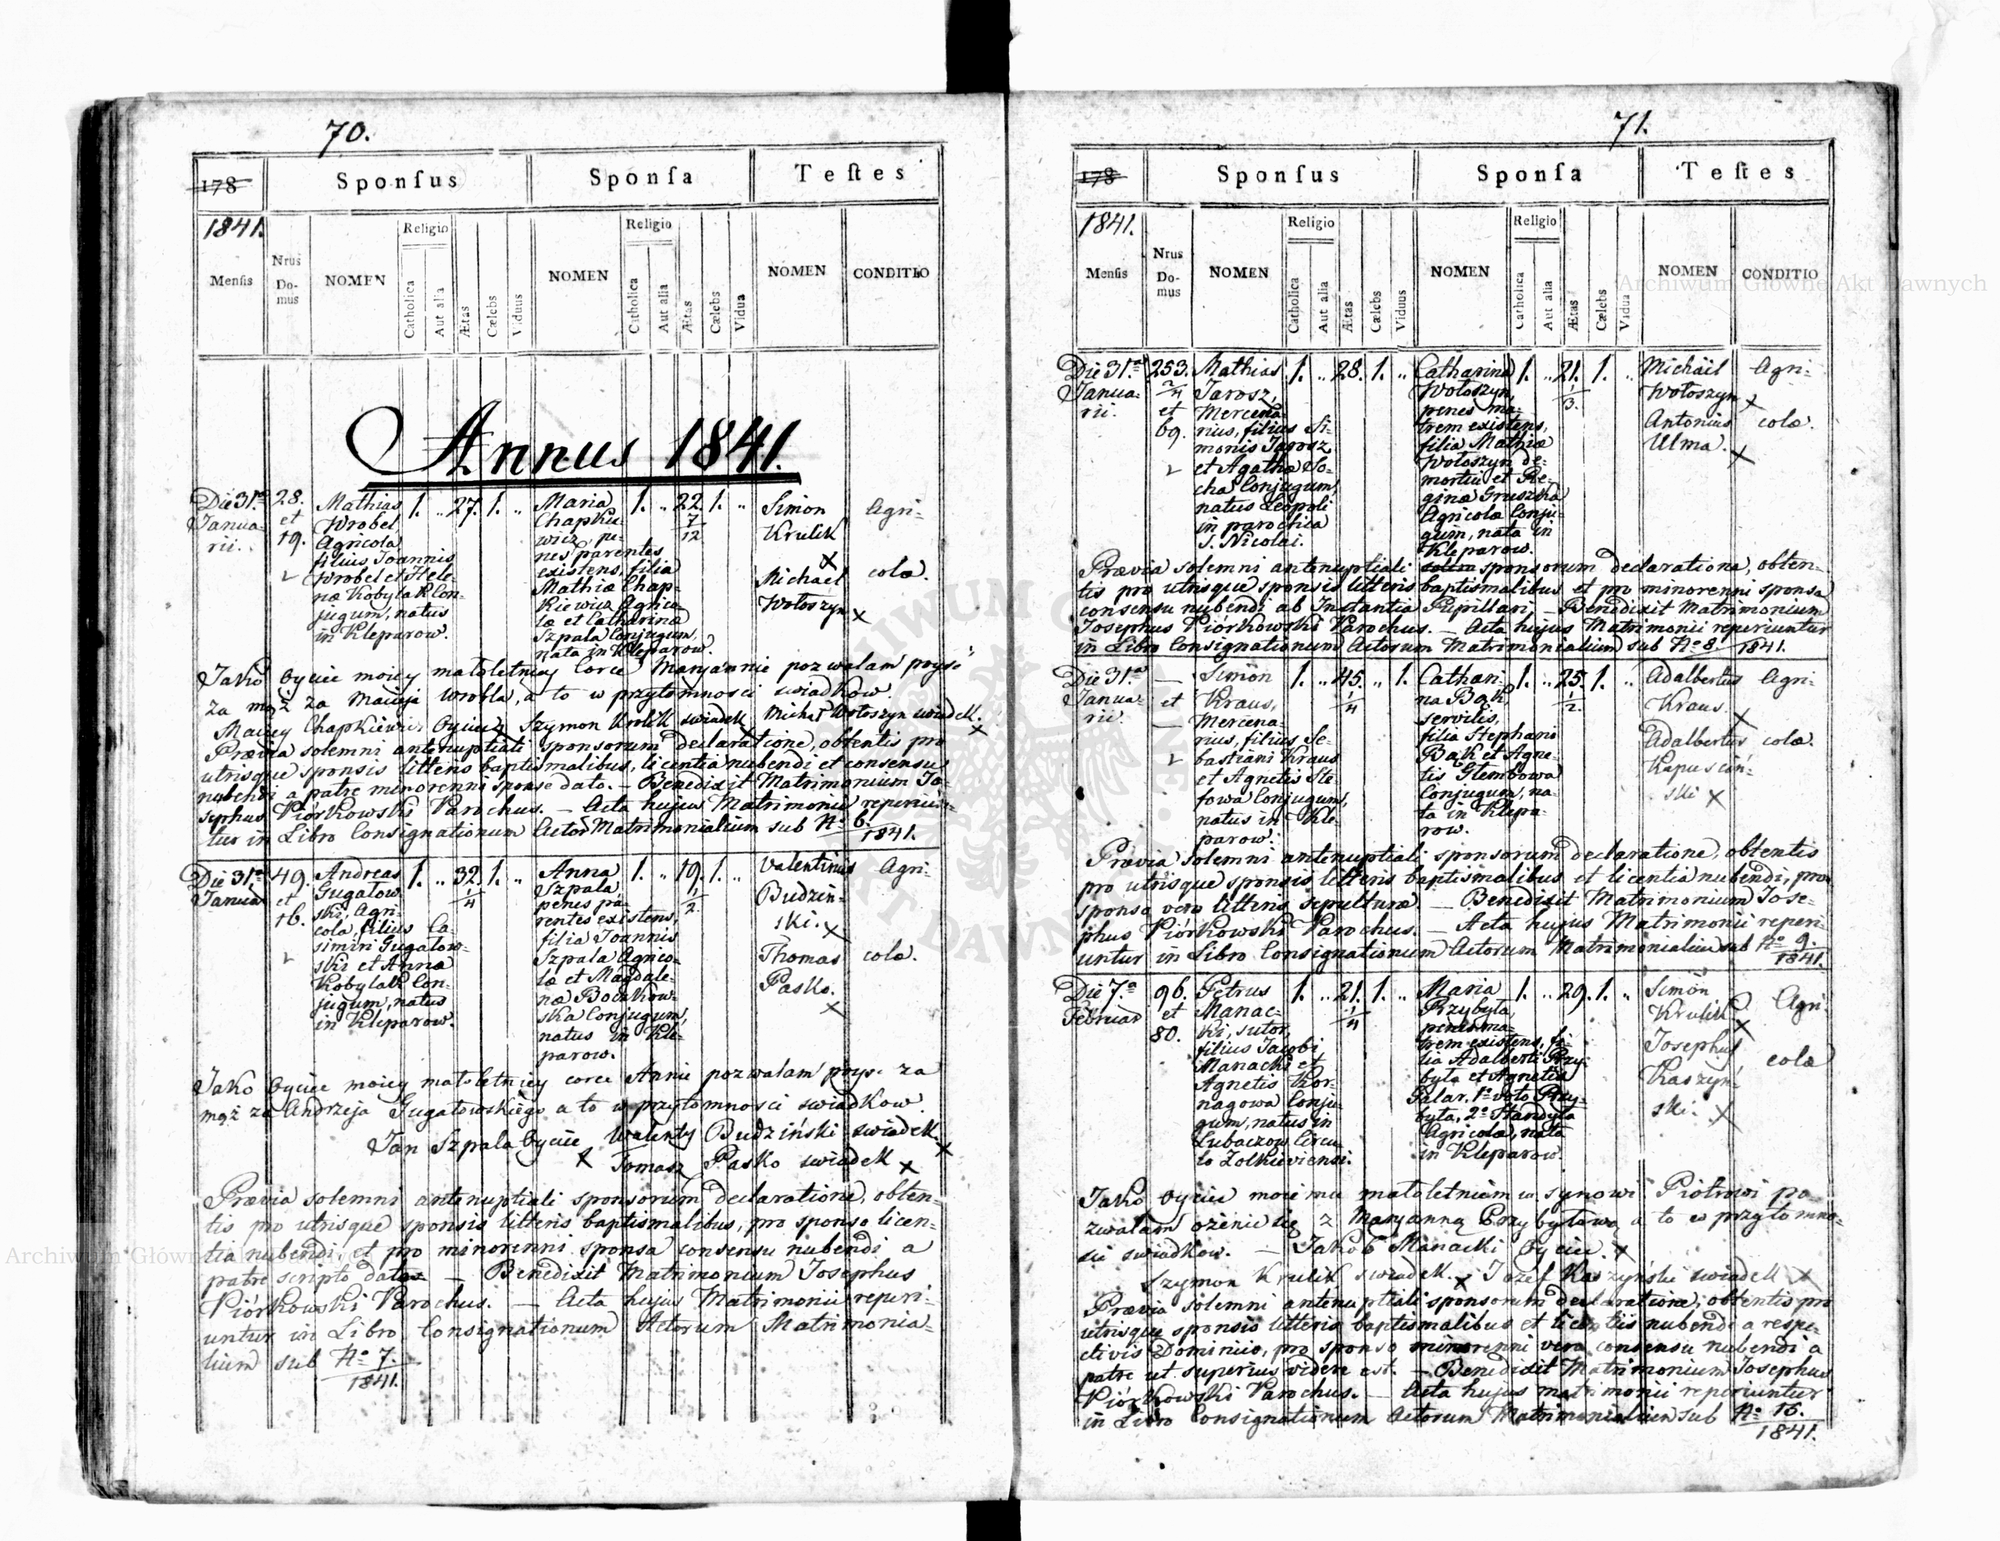 70.
178
Sponſus
Sponſa
Teſtes
1841.
Menſis
Nrus Do-mus
NOMEN
Religio
Catholica
Aut alia
Ætas
Cælebs
Viduus
NOMEN
Religio
Catholica
Aut alia
Ætas
Cælebs
Vidua
NOMEN
CONDITIO
Annus 1841.
Die 31ª
Janua-
rii.
28.
et
19.
Mathias
Wrobel
Agricola
filius Joannis
Wrobel et Hele-
næ Kobylak Con-
jugum, natus
in Kleparow.
1. „ 27. 1. „
Maria
Chapkie-
wicz, pe-
nes parentes
existens, filia
Mathiæ Chap-
kiewicz Agrico-
læ et Catharinæ
Szpala Conjugum,
nata in Kleparow.
1. „ 22. 7/12 1. „
Simon
Krulik
x
Michael
Wołoszyn x
Agri-
colæ.
Jako Oyciec moiey małoletniey Corce Maryannie pozwalam pryść
za mąż za Macieja Wrobla, a to w przytomnosci swiadkow.
Maciey Chapkiewicz Oyciec x Szymon Krolik swiadek Michał Wołoszyn swiadek. x
Prævia solemni antenuptiali sponsorum declaratione, obtentis pro
utrisque sponsis litteris baptismalibus, licentia nubendi et consensu
nubendi a patre minorenni sponsæ dato. – Benedixit Matrimonium Jo-
sephus Piórkowski Parochus. – Acta hujus Matrimonii reperiun-
tur in Libro Consignationum Actor Matrimonialium sub No 6.
1841.
Die 31ª
Januar
49.
et
16.
Andreas
Gugatow-
ski, Agri-
cola, filius Ca-
simiri Gugatow-
ski et Annæ
Kobylak Con-
jugum, natus
in Kleparow.
1. „ 32. 1/4 1. „
Anna
Szpala
penes pa-
rentes existens,
filia Joannis
Szpala Agrico-
læ et Magdale-
næ Boczkow-
ska Conjugum,
natus in Kle-
parow.
1. „ 19. 1/2 1. „
Valentinus
Budzin-
ski. x
Thomas
Pasko.
x
Agri-
colæ.
Jako Oyciec moiey małoletniey corce Annie pozwalam pryść za
mąż za Andrzeja Gugatowskiego a to w przytomnosci swiadkow.
Jan Szpala Oyciec x Walenty Budziński swiadek x
Tomasz Pasko swiadek x
Prævia solemni antenuptiali sponsorum declaratione, obten-
tis pro utrisque sponsis litteris baptismalibus, pro sponso licen-
tia nubendi, et pro minorenni sponsa consensu nubendi a
patre scripto datos – Benedixit Matrimonium Josephus
Piórkowski Parochus. – Acta hujus Matrimonii reperi-
untur in Libro Consignationum Actorum Matrimonia-
lium sub No 7.
1841.
71.
178
Sponſus
Sponſa
Teſtes
1841.
Menſis
Nrus Do-mus
NOMEN
Religio
Catholica
Aut alia
Ætas
Cælebs
Viduus
NOMEN
Religio
Catholica
Aut alia
Ætas
Cælebs
Vidua
NOMEN
CONDITIO
Die 31ª
Janua-
rii.
253.
2/4
et
69.
Mathias
Jarosz,
Mercena-
rius, filius Si-
monis Jarosz
et Agathæ So-
cha Conjugum,
natus Leopoli
in parochia
S. Nicolai.
1. „ 28. 1. „
Catharina
Wołoszyn,
penes ma-
trem existens,
filia Mathiæ
Wołoszyn de-
mortui et Re-
ginæ Gruszka
Agricolæ Conju-
gum, nata in
Kleparow.
1. „ 21. 1/3. 1. „
Michäel
Wołoszyn x
Antonius
Ulma. x
Agri-
colæ.
Prævia solemni antenuptiali sponsorum declaratione, obten-
tis pro utrisque sponsis litteris baptismalibus et pro minorenni sponsa
consensu nubendi ab Instantia Pupillari, – Benedixit Matrimonium
Josephus Piórkowski Parochus. – Acta hujus Matrimonii reperiuntur
in Libro Consignationum Actorum Matrimonialium sub No 8. 1841.
Die 31ª
Janua-
rii.
— et —
Simön
Kraus,
Mercena-
rius, filius Se-
bastiani Kraus
et Agnetis Ste-
fowa Conjugum,
natus in Kle-
parow.
1. „ 45. 1/4 „ 1.
Cathari-
na Bąk
servilis,
filia Stephani
Bąk et Agne-
tis Glembowa
Conjugum, na-
ta in Klepa-
row.
1. „ 25. 1/2. 1. „
Adalbertus
Kraus. x
Adalbertus
Kapuscin-
ski x
Agri-
colæ.
Prævia solemni antenuptiali sponsorum declaratione, obtentis
pro utrisque sponsis litteris baptismalibus et licentia nubendi, pro
sponso vero litteris sepulturæ. – Benedixit Matrimonium Jose-
phus Piórkowski Parochus. – Acta hujus Matrimonii reperi-
untur in Libro Consignationum Actorum Matrimonialium sub No 9.
1841.
Die 7ª
Februar
96.
et
80.
Petrus
Manac-
ki, sutor,
filius Jacobi
Manacki et
Agnetis Kor-
nagowa Conju-
gum, natus in
Lubaczow Circu-
lo Zolkieviensi.
1. „ 21. 1/4 1. „
Maria
Przybyła,
penes ma-
trem existens, fi-
lia Adalberti Przy-
była et Agnetis
Palar. 1º voto Przy-
była, 2º Standyła
Agricolæ, nata
in Kleparow.
1. „ 29. 1. „
Simön
Krulik
x
Josephus
Kaszyń-
ski. x
Agri-
colæ
Jako Oyciec moiemu małoletniemu synowi Piotrowi po-
zwalam ożenic się z Maryanną Przybyłową a to w przytomno-
sci swiadkow. – Jakób Manacki Oyciec. x
Szymon Krulik swiadek. x Jozef Kaszyński swiadek x
Prævia solemni antenuptiali sponsorum declaratione, obtentis pro
utrisque sponsis litteris baptismalibus et licentiis nubendi a respe-
ctivis Dominiis, pro sponso minorenni vero consensu nubendi a
patre ut superius videre est. – Benedixit Matrimonium Josephus
Piórkowski Parochus. – Acta hujus matrimonii reperiuntur
in Libro Consignationum Actorum Matrimonialium sub No 16.
1841.
Archiwum Główne Akt Dawnych